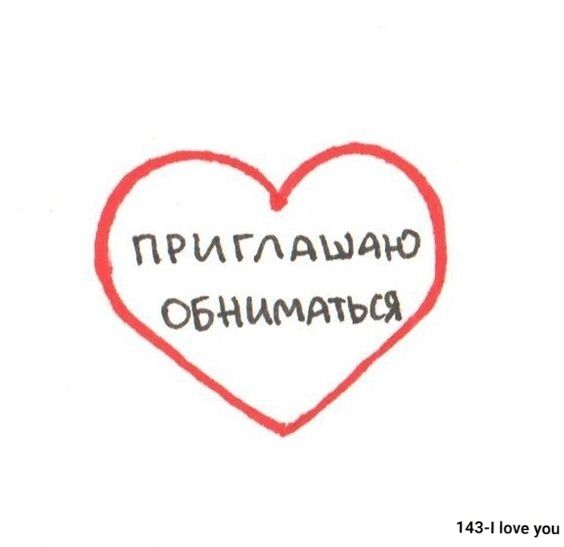 ПРИГЛАШАЮ
ОБНИМАТЬСЯ
143-I love you